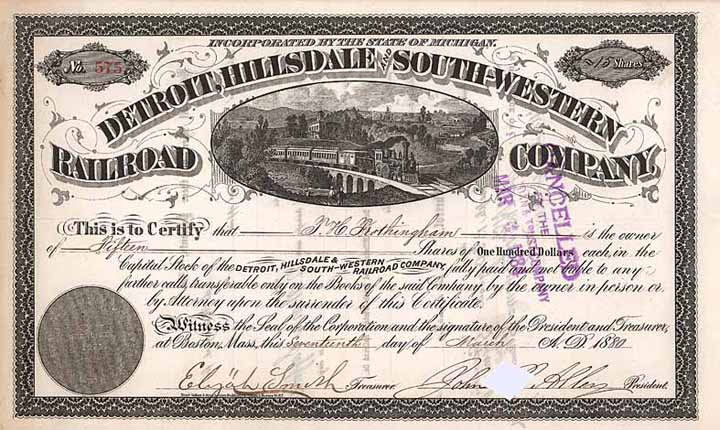 INCORPORATED BY THE STATE OF MICHIGAN.
No. 575
15 Shares
DETROIT, HILLSDALE AND SOUTH-WESTERN
RAILROAD COMPANY.
This is to Certify that T. H. Frothingham is the owner
of Fifteen Shares of One Hundred Dollars each, in the
Capital Stock of the DETROIT, HILLSDALE & SOUTH-WESTERN RAILROAD COMPANY, fully paid and not liable to any
further calls, transferable only on the Books of the said Company by the owner in person or
by Attorney upon the surrender of this Certificate.
Witness the Seal of the Corporation and the signature of the President and Treasurer,
at Boston, Mass, this Seventeenth day of March A.D. 1880
Elijah Smith Treasurer. John Allen President.
CANCELLED
BY THE
TRUST COMPANY
MAR